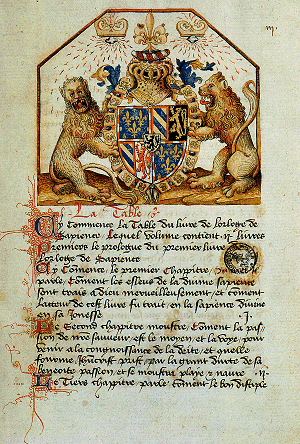 La Table
Cy commence la Table du livre de lorloge de
sapience lequel volume contient ij livres
premiers le prologue du premier livre
lorloge de sapience
Cy cōmence le premier chapitre
parle cōment les esleus de la divine sapience
sont trais a dieu merveilleusement et cōment
lacteur de cest livre fu trait en la sapience divine
en sa jonesse .j.
Le Second chapitre monstre cōment la pas
sion de nre sauveur est le moyen et la voye pour
venir a la congnoissance de la deite et quelle
fourme jhucrist prist par la grant durte de sa
benoite passion et se monstra playe et navre
Le Tiers chapitre parle cōment le bon disciple